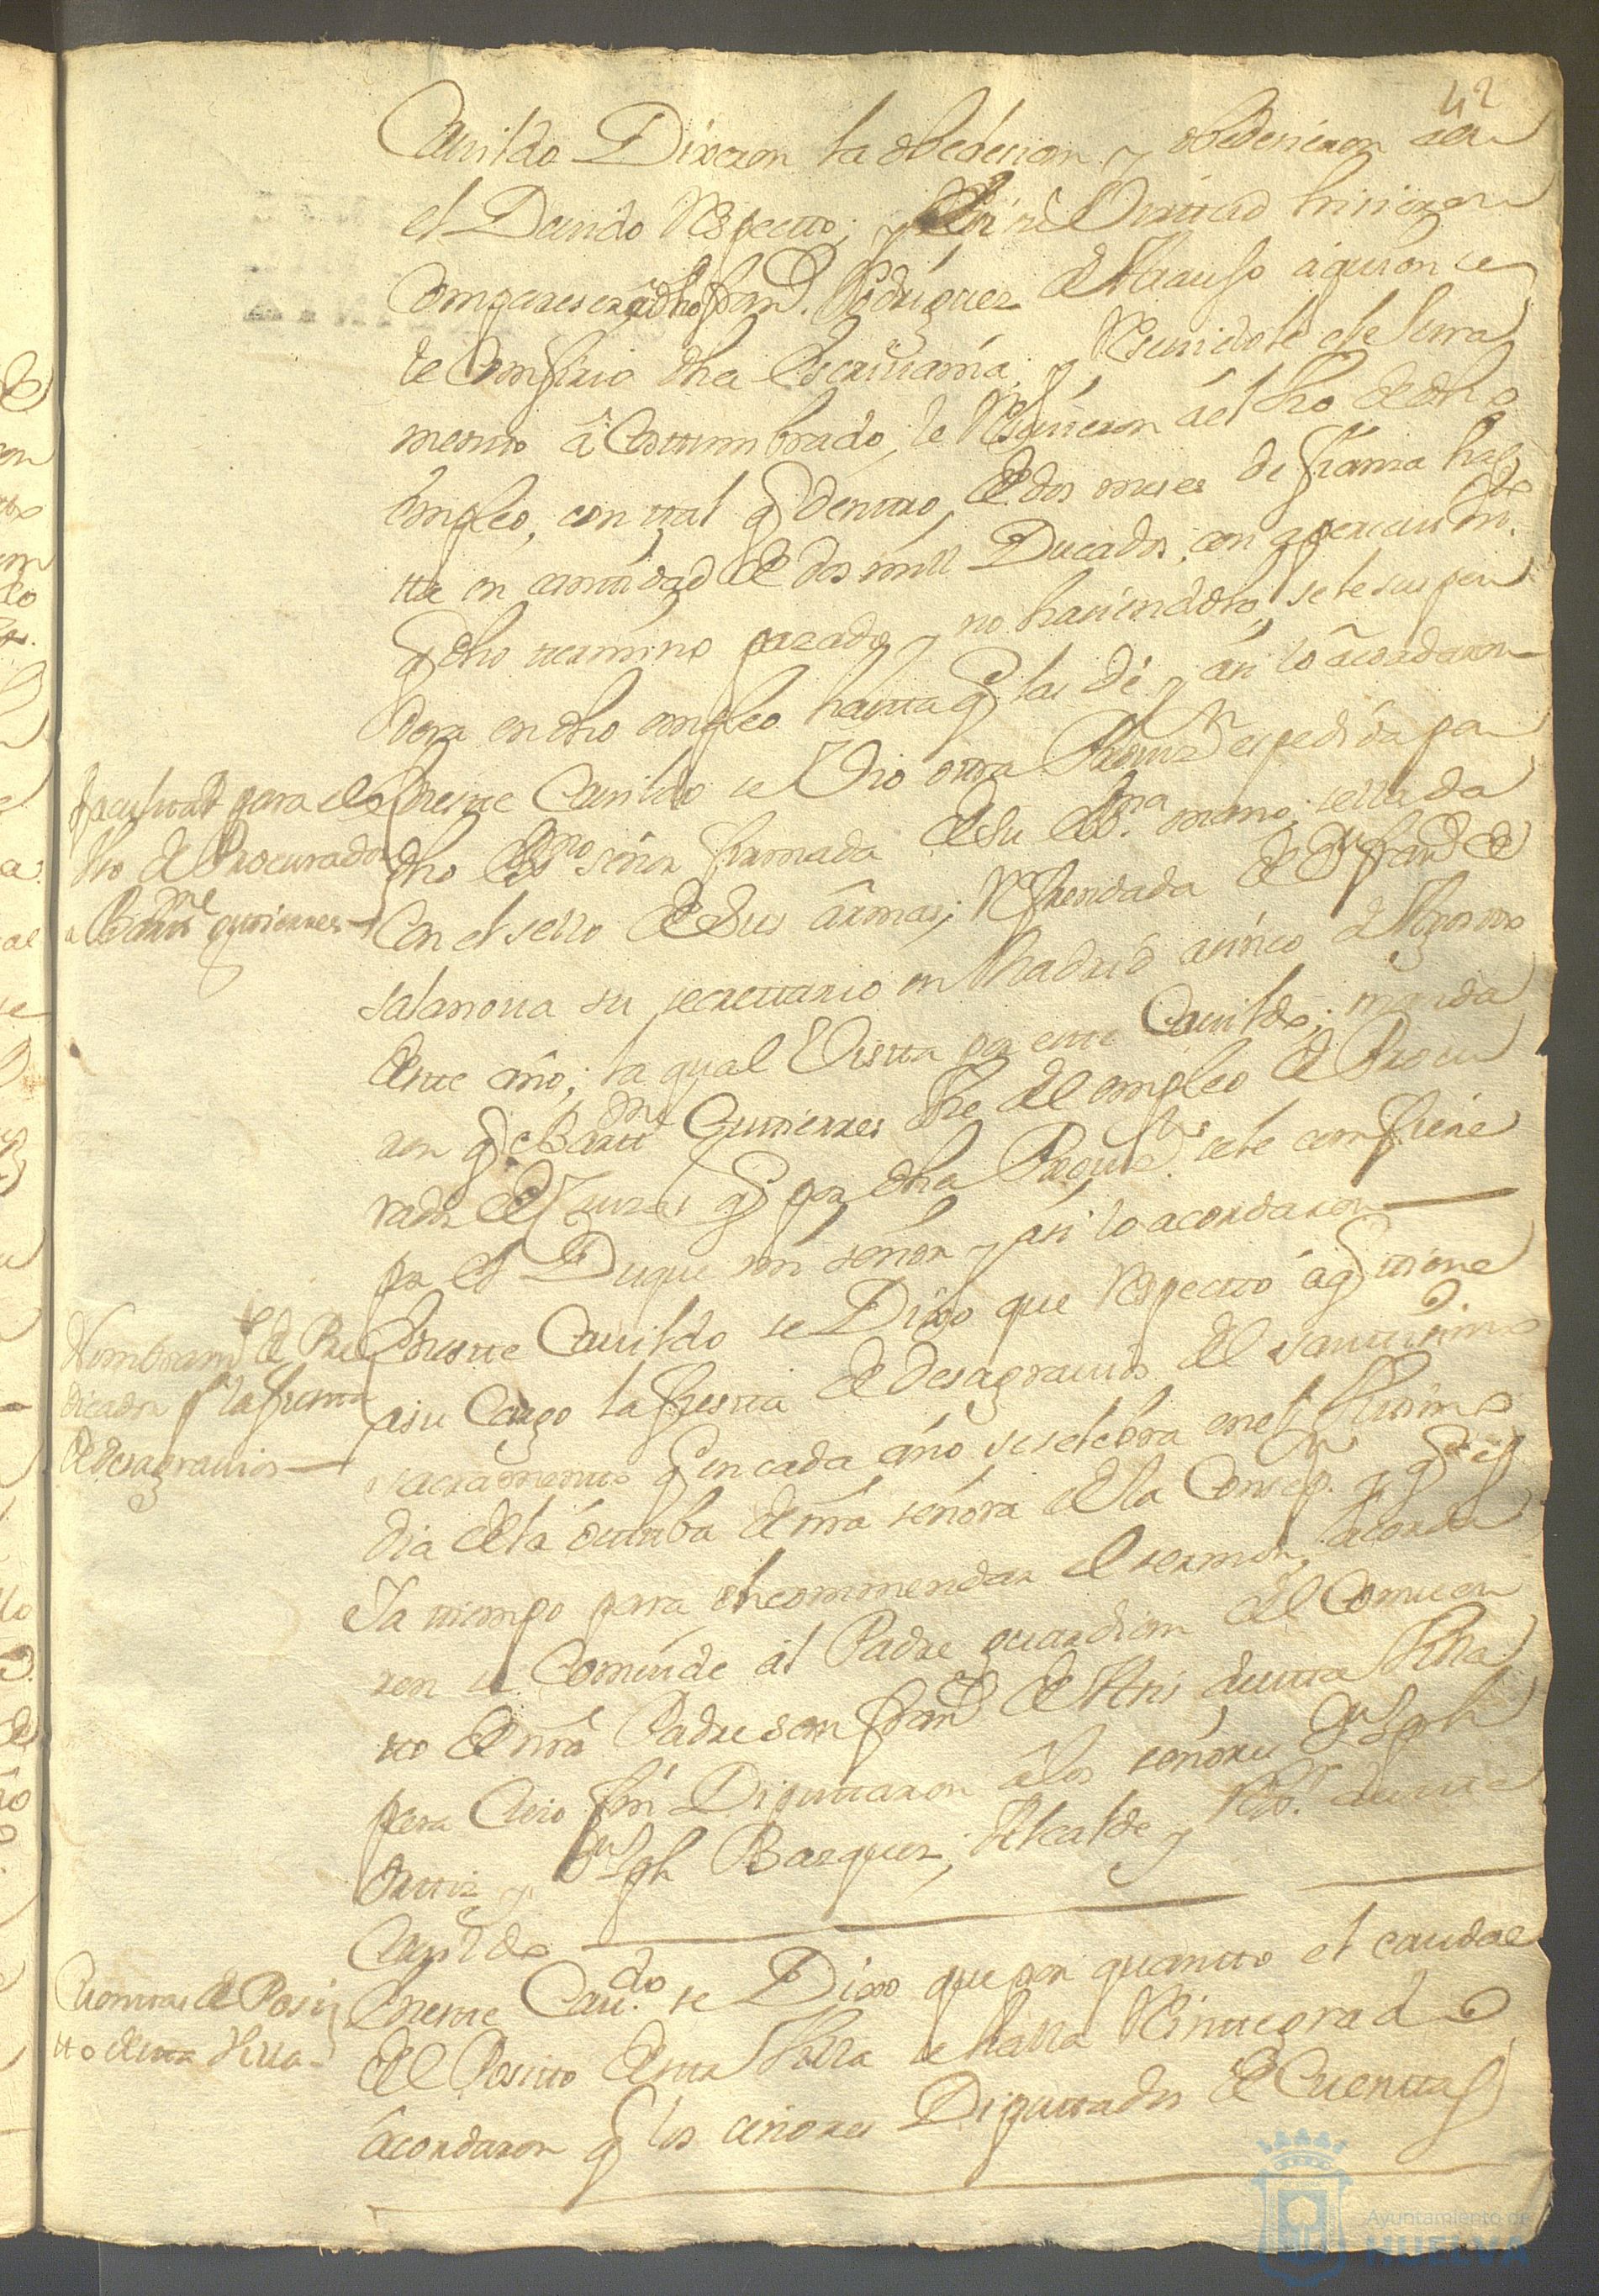 42
Cavildo Dixeron la obedecian y obedecieron con
el Devido Respecto; y en su Virttud hicieron
Comparecer a dho fran.co Rodriguez de Araujo a quien se
le Confirio dha Escrivania; y Resevidole el Jura
mentto a Costtumbrado, le Resivieron al Uso de dho
empleo, con ttal q denttro de dos meses de fianza has
tta en canttidad de dos mill Ducados, con apercivim.to
q dho ttermino pazado, y no haviendolo, se le suspen
dera en dho empleo hastta q las dé y asi lo acordaron
facultad para el Uso
Uso de Procurador
a Barttme guttierres
En este Cavildo se Vio ottra Proviz.n expedida por
dho Ex.mo señor firmada de su Ex.ma mano; sellada
Con el sello de sus armas; Refrendada de Dn fran.co de
salanova su secrettario en Madrid a cinco de Agosto
de este año; la qual Vistta por este Cavildo; manda
ron q Barttme Guttierres Use del empleo de Procu
rador de q por dha Provis.n se le confiere
por el Duque mi señor y asi lo acordaron
Nombram.to de Pre
dicador p.a la fiestta
de desagravios
En este Cavildo se Dixo que respecto a q ttiene
a su Cargo la fiestta de desagravios del Santtisimo
sacramentto q en cada año se selebra en el Ulttimo
dia de la octtaba de nra señora de la Consep.n y q es
Ya tiempo para encommendar el sermon, acorda
ron se Comende al Padre guardian del Comven
tto de nro Padre san fran.co de Asis de estta Villa
para Cuio fin Diputtaron a los señores Dn Jph
Orttiz y Dn Jph Bazquez, Alcalde y Rx.or de este
Cavildo
Cuenttas de Posi
tto de estta Villa
En este Cav.do se Dixo que por quantto el caudal
del Positto de estta Villa se halla Reinttegrado
acordaron q los señores Diputtados de Cuenttas
Ayuntamiento de
HUELVA